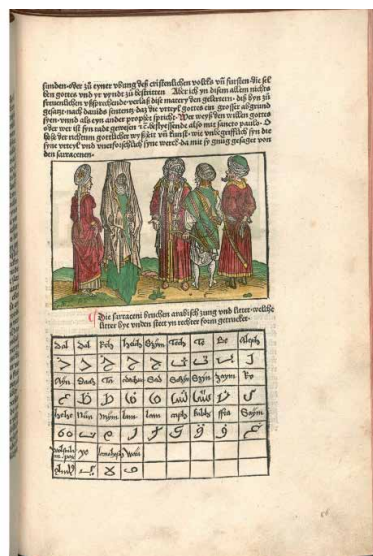 sunden·oder zů eyner ůbang deß cristenlichen volcks vň fursten·die sel
ben gottes vnd yr vyndt zů bestritten Aber ich yn disem allem nichts
freuenlichen vßsprechende·verlaß dise matery den gelertern·diß hyn zů
gesatzt·nach dauids sentenz·daz die vrteyl gottes ein grosser abgrund
syen·vnnd als eyn ander prophet spricht·Wer weyß den willen gottes
oder wer ist syn rade gewesen ⁊c·beslyessende also mit sancto paulo·O
höhe der richtum gottlicher wyßheit vň kunst·wie vnbegrifflich syn die
syne vrteyl vnd vnerforschlich syne werck·da mit sy gnůg gesaget von
den sarracenen·
Die sarraceni bruchen arabisch zung vnd litter·wellhe
litter hye vnden steet yn rechter form getrucket·
Dal Dal Reh heich Gzym Tech Te Be Aleph
Ayn Dach Ta Sad Schyn Szyn zaym Re
hehe Nun Mym lam lam caph kabh ffea Gaym
yo lamabeph Wau